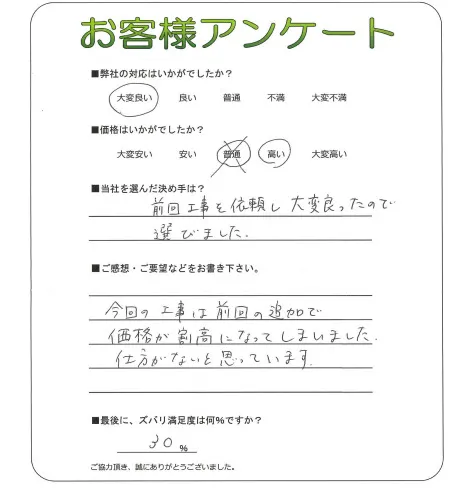 お客様アンケート
■弊社の対応はいかがでしたか？
大変良い 良い 普通 不満 大変不満
■価格はいかがでしたか？
大変安い 安い 普通 高い 大変高い
■当社を選んだ決め手は？
前回工事を依頼し大変良ったので
選びました．
■ご感想・ご要望などをお書き下さい。
今回の工事は前回の追加で
価格が割高になってしまいました．
仕方がないと思っています．
■最後に、ズバリ満足度は何％ですか？
30 %
ご協力頂き、誠にありがとうございました。